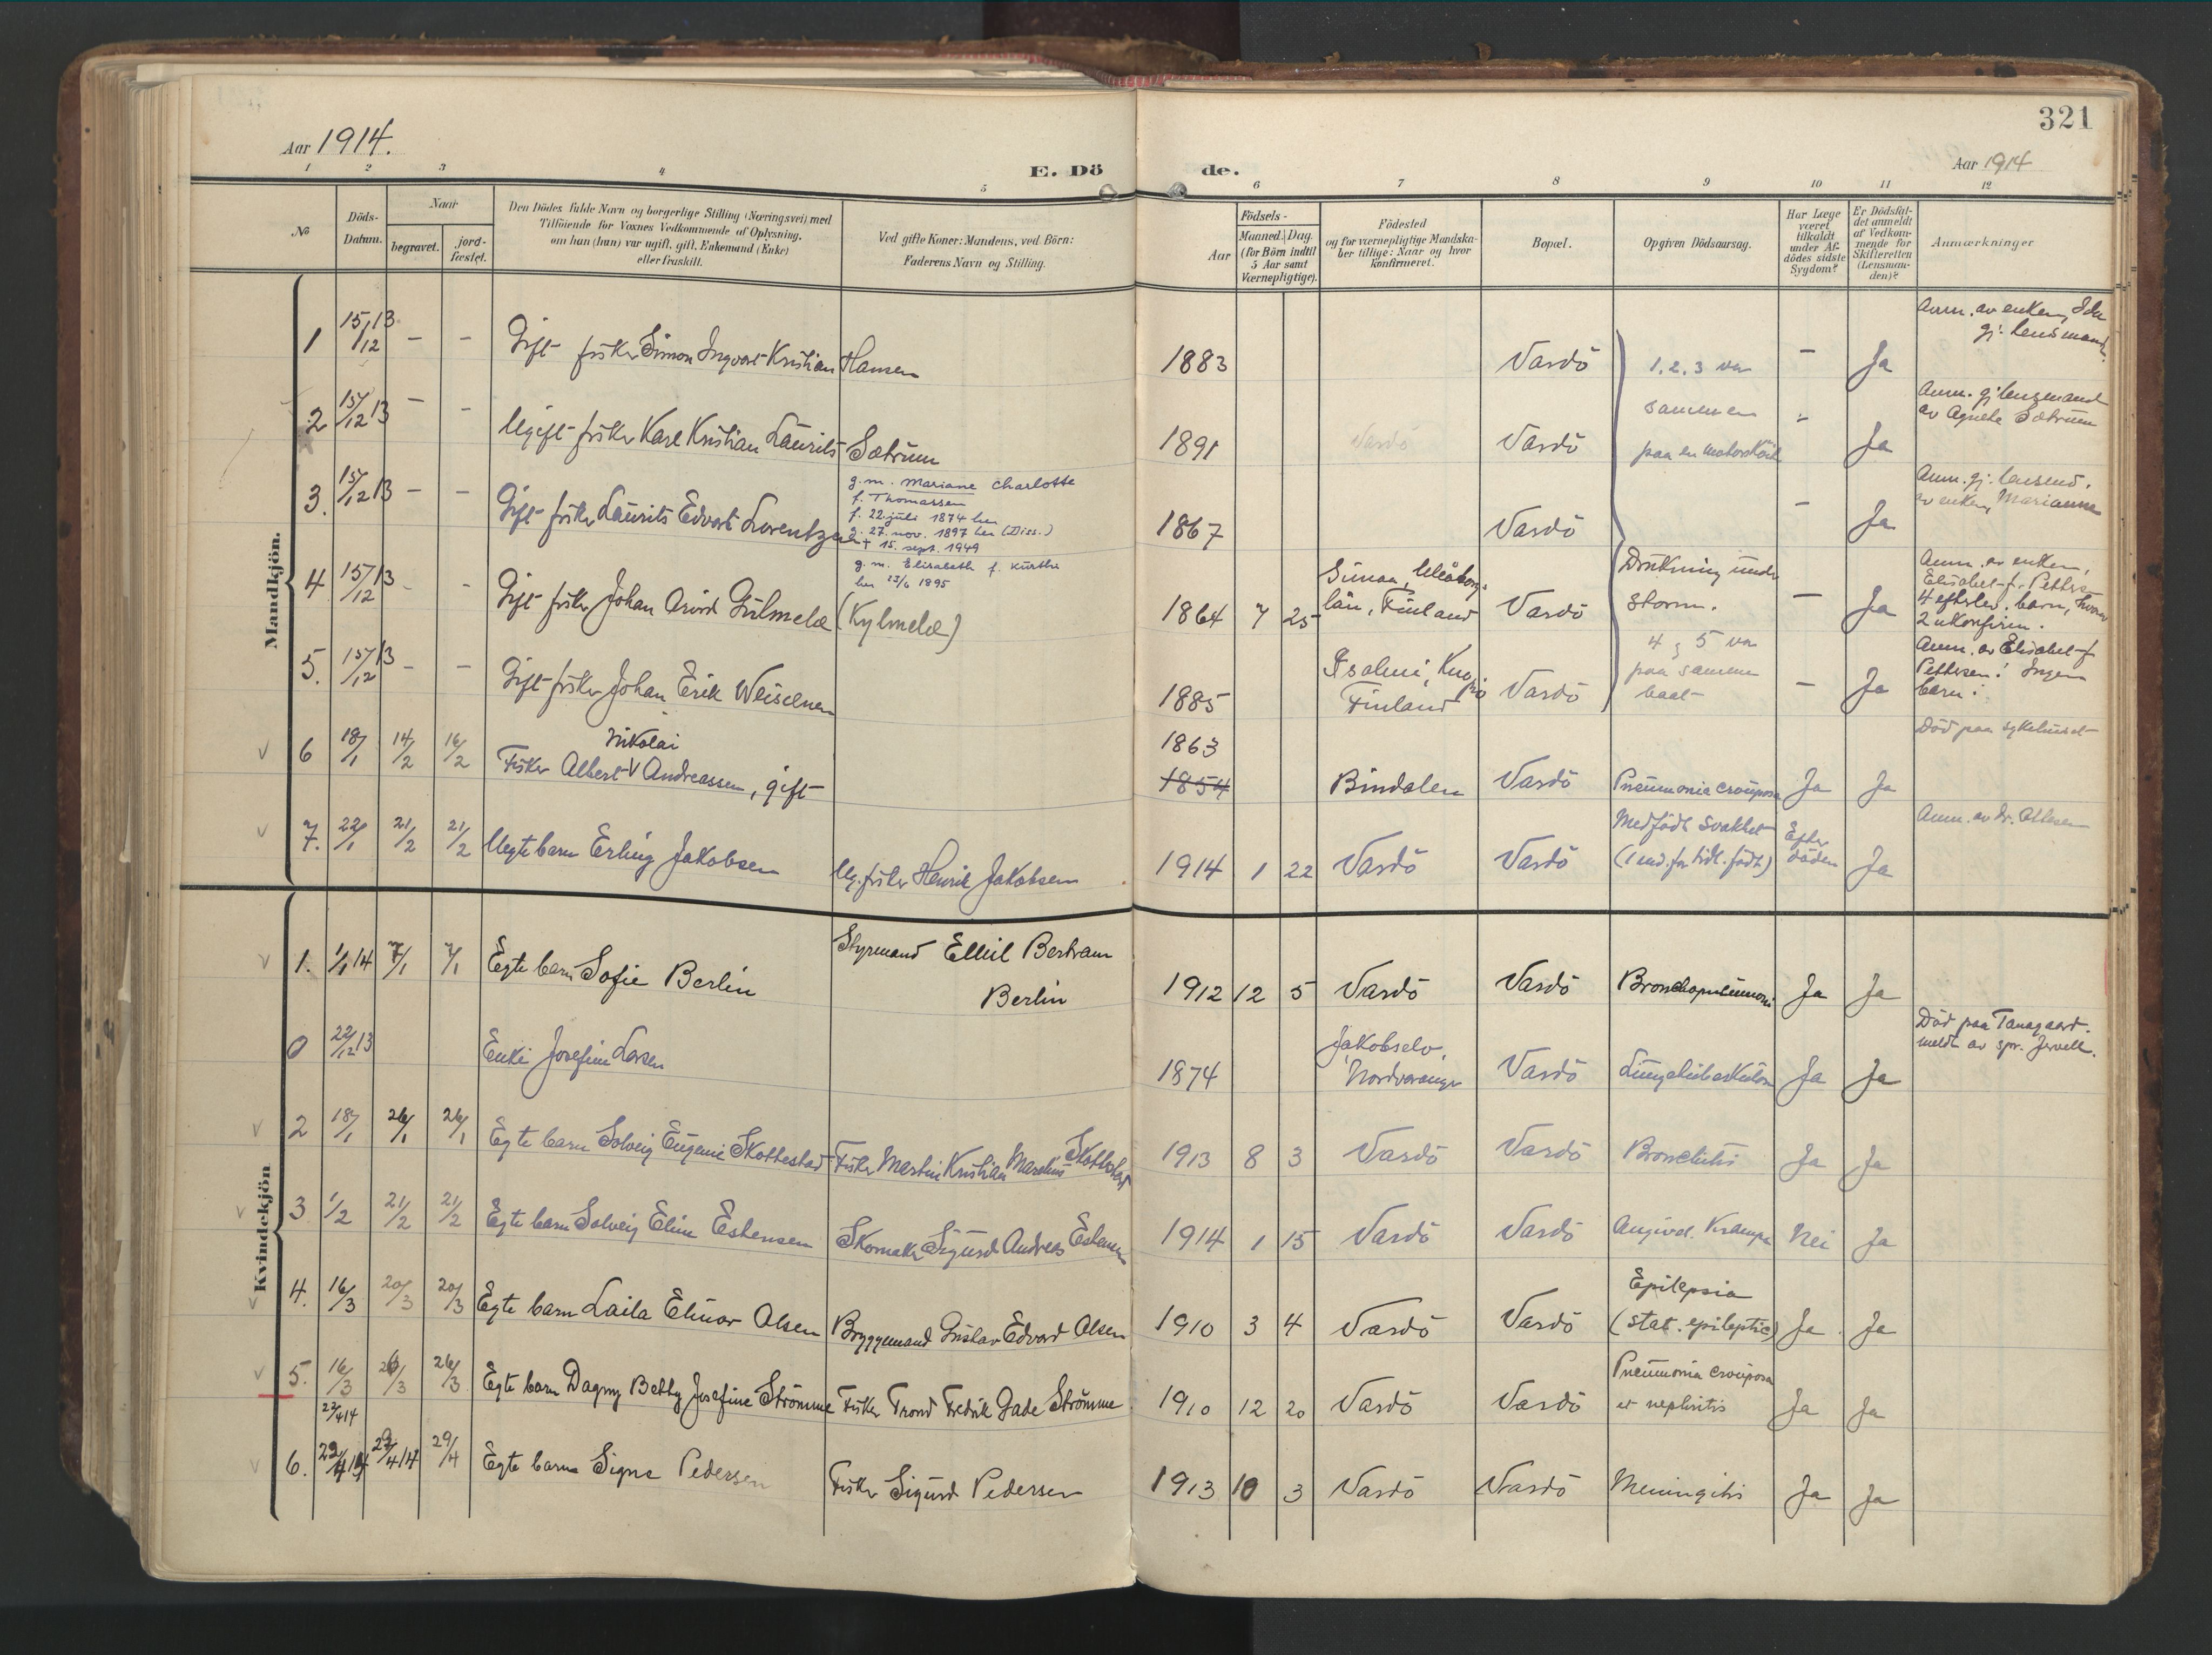 321
Aar 1914.
E. Döde.
Aar 1914
1 2 3 4 5 6 7 8 9 10 11 12
No
Döds-Datum.
Naar
begravet.
jord-fæstet.
Den Dödes fulde Navn og borgerlige Stilling (Næringsvei) med
Tilföiende for Voxnes Vedkommende af Oplysning,
om han (hun) var ugift, gift, Enkemand (Enke)
eller fraskilt.
Ved gifte Koner: Mandens, ved Börn:
Faderens Navn og Stilling.
Födsels-
Aar
Maaned. Dag.
(for Börn indtil
5 Aar samt
Værnepligtige).
Födested
og for værnepligtige Mandska-
ber tillige: Naar og hvor
Konfirmeret.
Bopæl.
Opgiven Dödsaarsag.
Har Læge
været
tilkaldt
under Af-
dödes sidste
Sygdom?
Er Dödsfal-
det anmeldt
af Vedkom-
mende for
Skifteretten
(Lensman-
den)?
Anmærkninger
Mandkjön.
1 15/12 13 - - Gift fisker Simon Ingvart Kristian Hansen 1883 Vardö 1.2.3 var - Ja Anm. av enken, Ida
gj. lensmand.
2 15/12 13 - - Ugift fisker Karl Kristian Laurits Sætrum 1891 Vardö Vardö sammen
paa en motorskøit - Ja Anm. gj lensmand
av Agnete Sætrum
3. 15/12 13 - - Gift fisker Laurits Edvart Lorentzen 1867 Vardö - Ja Anm. gj. lensmd.
av enken, Marianne
g.m. Mariane Charlotte
f. Thomassen
f. 22. juli 1874 her
g. 27. nov. 1897 her (Diss.)
+ 15. sept. 1949
4 15/12 13 - - Gift fisker Johan Arvid Gülmelæ (Kylmelæ) 1864 7 25 Simaa, Uleåborgs
län, Finland Vardö Drukning under
storm. - Ja Anm. av enken,
Elisabet f. Petters
4 efterlev. barn, hvorav
2 ukonfirm.
g.m. Elisabeth f. Kurthi
her 23/6 1895
5. 15/12 13 - - Gift fisker Johan Erik Weisenen 1885 Isalmi, Kuopio
Finland Vardö 4 og 5 var
paa samme
baat - Ja Anm. av Elisabet f
Pettersen! Ingen
barn!
6 18/1 14/2 16/2 Fisker Albert Nikolai Andreassen, gift 1863
1854 Bindalen Vardö Pneumonia crouposa Ja Ja Död paa sykehuset
7. 22/1 21/2 21/2 Uegte barn Erling Jakobsen Ug. fisker Henrik Jakobsen 1914 1 22 Vardö Vardö Medfödt svakhet
(1 md. for tidl. födt) Efter
döden Ja Anm. av dr. Ottesen
Kvindekjön
1. 1/1 14 7/1 7/1 Egte barn Sofie Berlin Styrmand Emil Bertram
Berlin 1912 12 5 Vardö Vardö Bronchopneumoni Ja Ja
0 22/12 13 Enke Josefine Larsen 1874 Jakobselv,
Nordvaranger Vardö Lungetuberkulose Ja Ja Död paa Tanagaard.
meldt av spr. Jervell.
2 18/1 26/1 26/1 Egte barn Solveig Eugenie Skottestad Fisker Martin Kristian Marelius Skottestad 1913 8 3 Vardö Vardö Bronchitis Ja Ja
3 1/2 21/2 21/2 Egte barn Solveig Eline Estensen Skomaker Sigurd Andreas Estensen 1914 1 15 Vardö Vardö Angivel. Krampe Nei Ja
4. 16/3 20/3 20/3 Egte barn Laila Elinor Olsen Bryggemand Gustav Edvard Olsen 1910 3 4 Vardö Vardö Epilepsia
(stat. epileptic) Ja Ja
5. 16/3 26/3 26/3 Egte barn Dagny Betty Josefine Strömme Fisker Trond Fredrik Gade Strömme 1910 12 20 Vardö Vardö Pneumonia crouposa
et nephritis Ja Ja
6. 22/4 14 29/4 14 29/4 Egte barn Signe Pedersen Fisker Sigurd Pedersen 1913 10 3 Vardö Vardö Meningitis Ja Ja